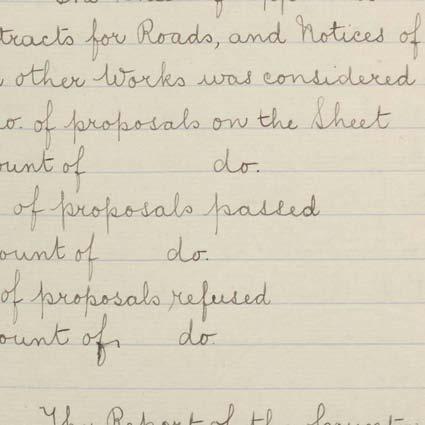 tracts for Roads, and Notices of
other Works was considered
o. of proposals on the Sheet
ount of do.
of proposals passed
ount of do.
of proposals refused
ount of, do.
The Report of the